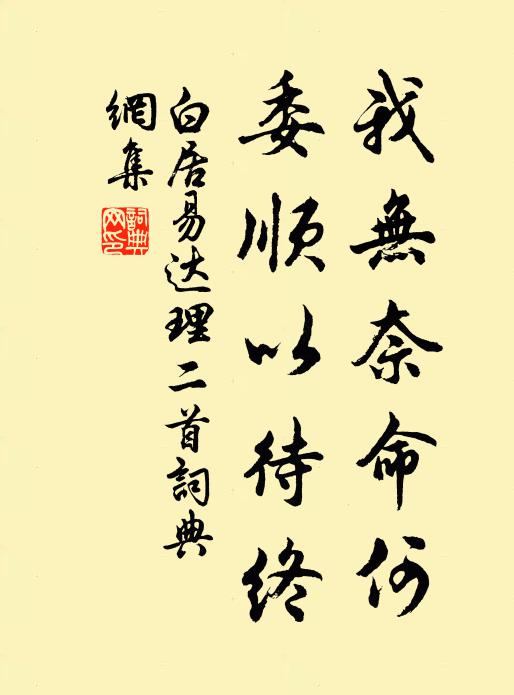 我無奈命何
委順以待終
白居易达理二首詞典
網集
詞典网印